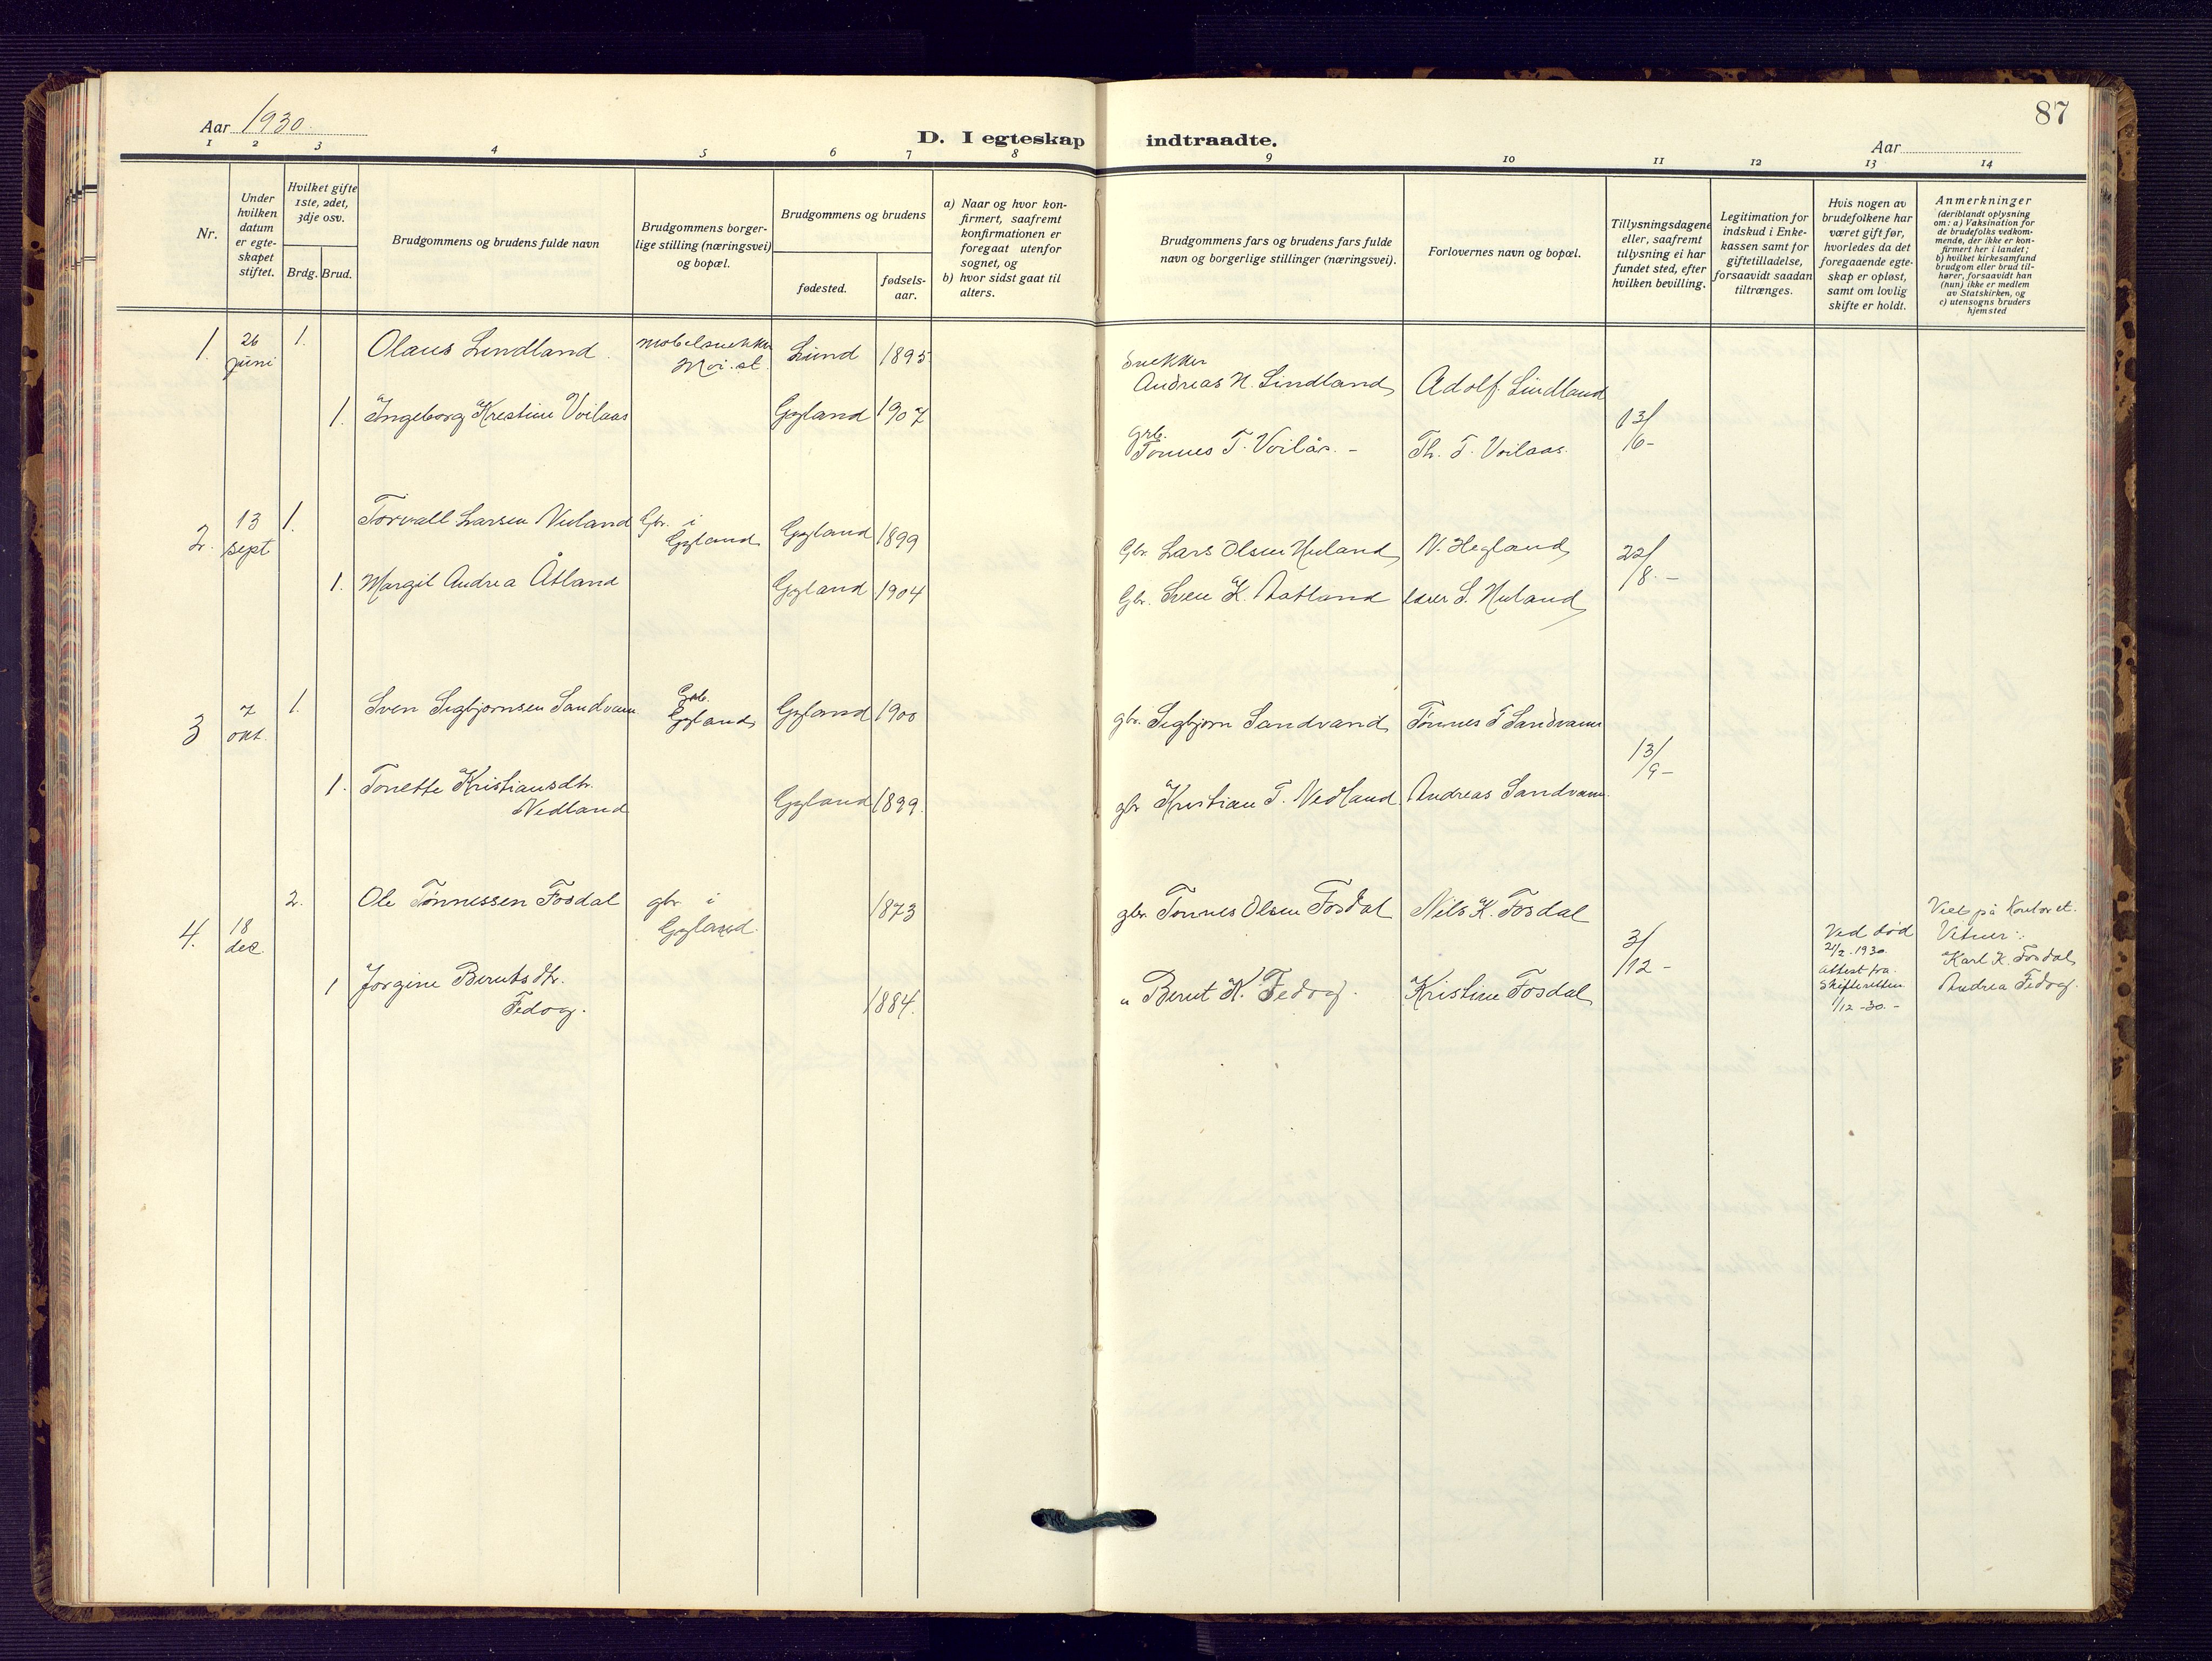 87
Aar 1930.
D. I egteskap indtraadte.
Aar
1 2 3 4 5 6 7 8 9 10 11 12 13 14
Nr.
Under
hvilken
datum
er egte-
skapet
stiftet.
Hvilket gifte
1ste, 2det,
3dje osv.
Brdg. Brud.
Brudgommens og brudens fulde navn
Brudgommens borger-
lige stilling (næringsvei)
og bopæl.
Brudgommens og brudens
fødested.
fødsels-
aar.
a) Naar og hvor kon-
firmert, saafremt
konfirmationen er
foregaat utenfor
sognet, og
b) hvor sidst gaat til
alters.
Brudgommens fars og brudens fars fulde
navn og borgerlige stillinger (næringsvei).
Forlovernes navn og bopæl.
Tillysningsdagene
eller, saafremt
tillysning ei har
fundet sted, efter
hvilken bevilling.
Legitimation for
indskud i Enke-
kassen samt for
giftetilladelse,
forsaavidt saadan
tiltrænges.
Hvis nogen av
brudefolkene har
været gift før,
hvorledes da det
foregaaende egte-
skap er opløst,
samt om lovlig
skifte er holdt.
Anmerkninger
(deriblandt oplysning
om: a) Vaksination for
de brudefolks vedkom-
mende, der ikke er kon-
firmert her i landet;
b) hvilket kirkesamfund
brudgom eller brud til-
hører, forsaavidt han
(hun) ikke er medlem
av Statskirken, og
c) utensogns bruders
hjemsted
1. 26 juni 1. Olaus Lindland. møbelsnekker Moi. st. Lund 1895
Snekker
Andreas N. Lindland Adolf Lindland
1. Ingeborg Kristine Voilaas Gyland 1907
Grb.
Tønnes T. Voilås. - Th. T. Voilaas.
13/6 -
2. 13 sept 1. Torvall Larsen Nuland Gbr. i Gyland Gyland 1899
Gbr. Lars Olsen Nuland N. Hegland
22/8. -
1. Margit Andrea Åtland Gyland 1904
Gbr. Sven K. Aatland lærer S. Nuland
3 7 okt. 1. Sven Sigbjørnsen Sandvann Grb. Gyland Gyland 1900
gbr. Sigbjørn Sandvand Tønnes T Sandvann
13/9 -
1. Tonette Kristiansdtr.
Nedland Gyland 1899.
gbr Kristian T. Nedland Andreas Sandvann.
4. 18 des. 2. Ole Tønnessen Fosdal gbr. i Gyland. 1873
gbr. Tønnes Olsen Fosdal Nils K. Fosdal
3/12 -
Ved død
21/2. 1930.
Attest fra
Skifteretten
1/12 - 30. -
Viet på Kontoret.
Vitner:
Karl K. Fosdal
Andrea Fedog.
1 Jorgine Berntsdtr.
Fedog. 1884.
" Bernt K. Fedog. Kristine Fosdal